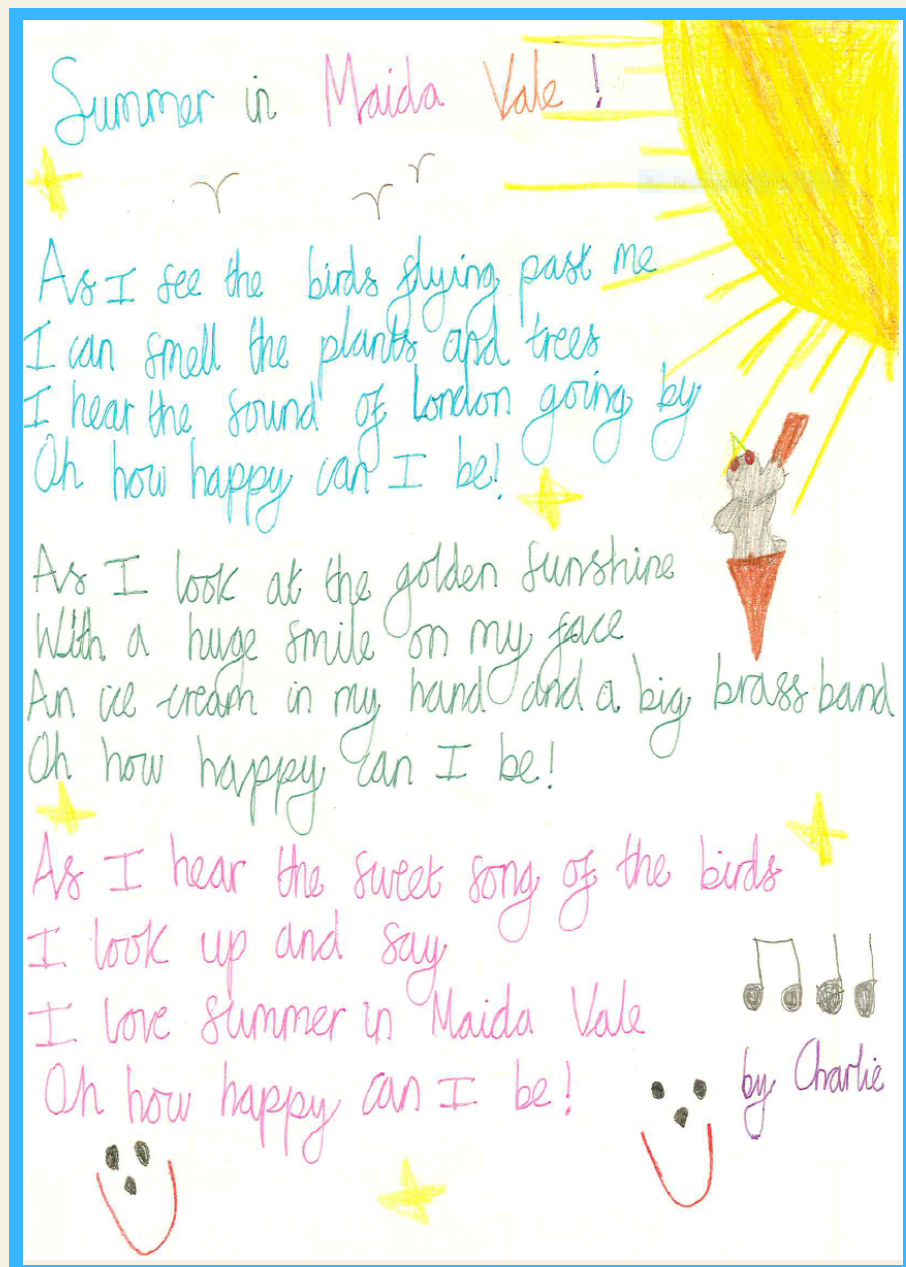 Summer in Maida Vale !
As I see the birds flying past me
I can smell the plants and trees
I hear the sound of London going by
Oh how happy can I be!
As I look at the golden sunshine
With a huge smile on my face
An ice cream in my hand and a big brass band
Oh how happy can I be!
As I hear the sweet song of the birds
I look up and say
I love summer in Maida Vale
Oh how happy can I be!
by Charlie